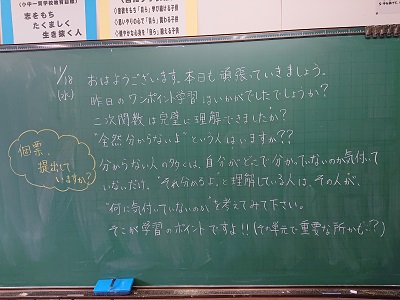 (小中一貫学校教育目標)
志をもち
たくましく
生き抜く人
11/18
(水)
おはようございます。本日も頑張っていきましょう。
昨日のワンポイント学習はいかがでしたでしょうか?
二次関数は完璧に理解できましたか?
"全然分からないよ"という人はいますか??
分からない人の多くは、自分がどこで分かっていないのか気付いて
いないだけ、"それ分かるよ。"と理解している人は、その人が、
"何に気付いていないのか"を考えてみて下さい。
そこが学習のポイントですよ!!(その単元で重要な所かも…?)
個票、
提出して
いますか?